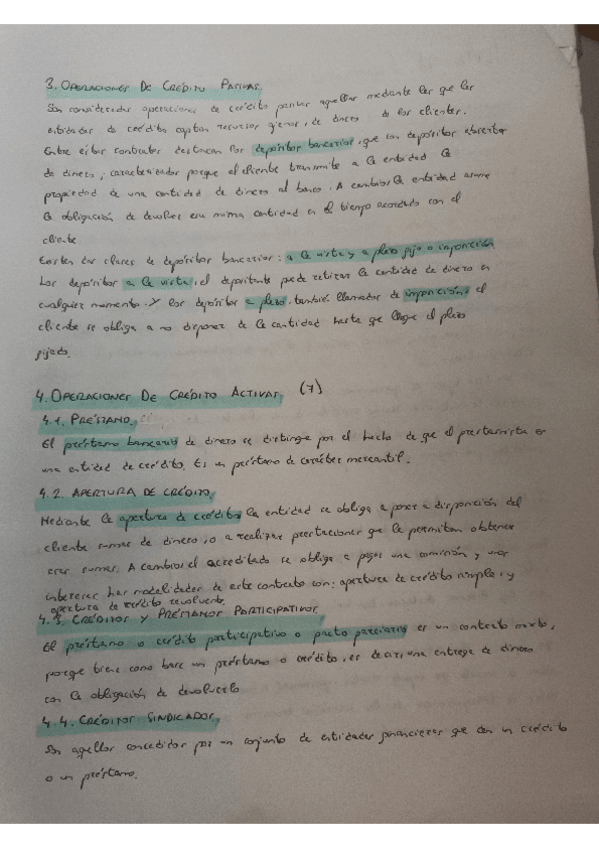 3. OPERACIONES DE CRÉDITO PASIVAS.
Son consideradas operaciones de crédito pasivas aquellas mediante las que las
entidades de crédito captan recursos ajenos, de dinero de los clientes.
Entre estos contratos destacan los depósitos bancarios, que son depósitos abiertos
de dinero, caracterizados porque el cliente transmite a la entidad la
propiedad de una cantidad de dinero al banco. A cambio, la entidad asume
la obligación de devolver esa misma cantidad en el tiempo acordado con el
cliente
Existen dos clases de depósitos bancarios: a la vista y a plazo fijo o imposición
Los depósitos a la vista, el depositante puede retirar la cantidad de dinero en
cualquier momento. Y los depósitos a plazo, también llamados de imposición, el
cliente se obliga a no disponer de la cantidad hasta que llegue el plazo
fijado.
4. OPERACIONES DE CRÉDITO ACTIVAS (7)
4.1. PRÉSTAMO.
El préstamo bancario de dinero se distingue por el hecho de que el prestamista es
una entidad de crédito. Es un préstamo de carácter mercantil.
4.2. APERTURA DE CRÉDITO.
Mediante la apertura de crédito, la entidad se obliga a poner a disposición del
cliente sumas de dinero, o a realizar prestaciones que le permitan obtener
esas sumas. A cambio, el acreditado se obliga a pagar una comisión y unos
intereses. Las modalidades de este contrato son: apertura de crédito simple, y
apertura de crédito revolvente.
4.3 CRÉDITOS Y PRÉSTAMOS PARTICIPATIVOS
El préstamo o crédito participativo o pacto parciario es un contrato mixto,
porque tiene como base un préstamo o crédito, es decir, una entrega de dinero
con la obligación de devolverlo
4.4. CRÉDITOS SINDICADOS.
Son aquellos concedidos por un conjunto de entidades financieras que dan un crédito
o un préstamo.